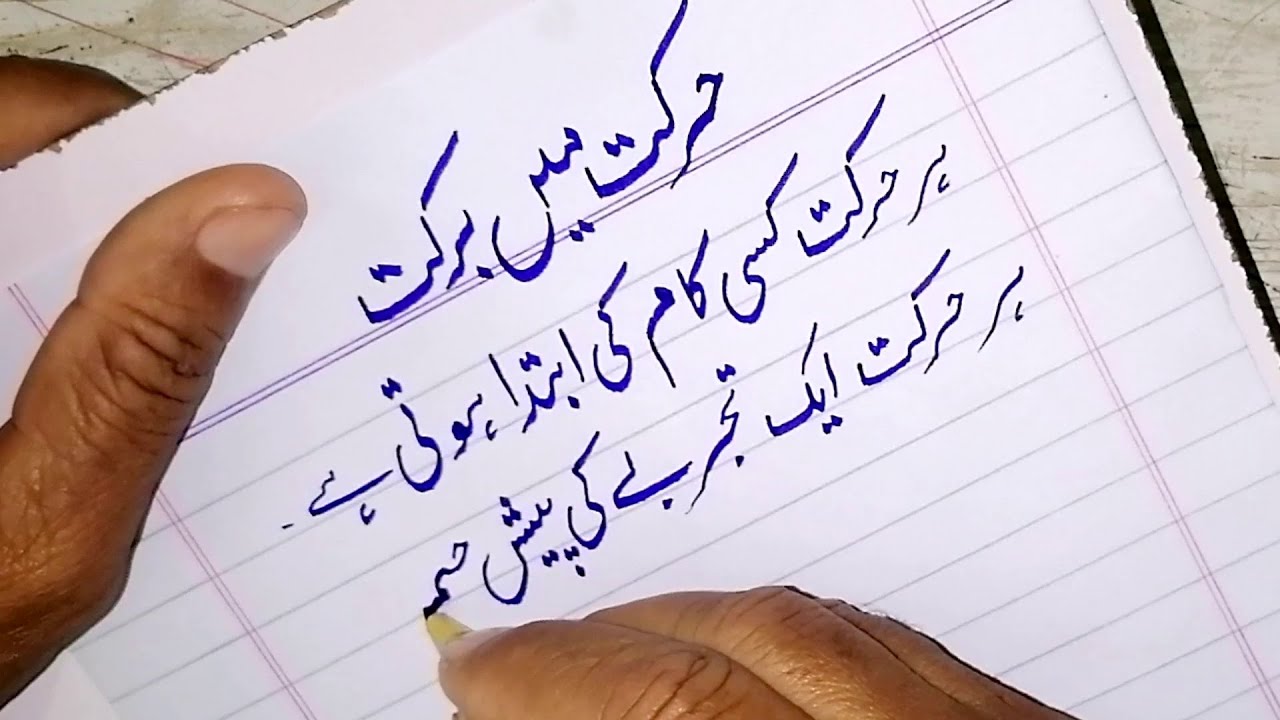 حرکت میں برکت
ہر حرکت کسی کام کی ابتدا ہوتی ہے۔
ہر حرکت ایک تجربے کی پیش